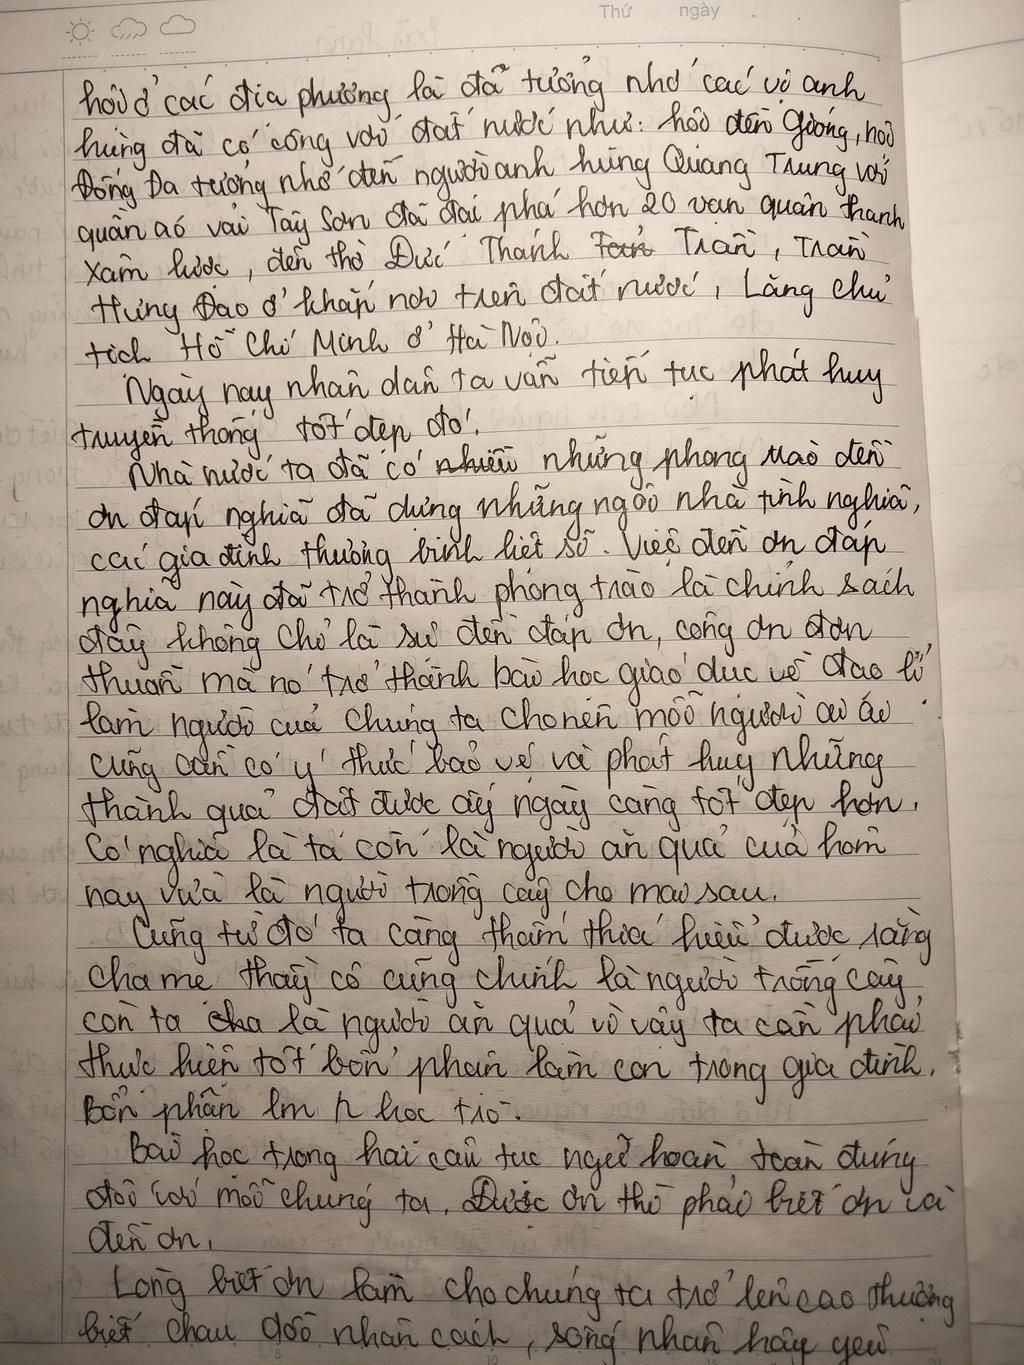 Thứ ngày
hội ở các địa phương là đã tưởng nhớ các vị anh
hùng đã có công với đất nước như: hội đền Gióng, hội
Đống Đa tưởng nhớ đến người anh hùng Quang Trung với
quần áo vải Tây Sơn đã đại phá hơn 20 vạn quân thanh
xâm lược, đền thờ Đức Thánh Trần, Trần
Hưng Đạo ở khắp nơi trên đất nước, Lăng chủ
tịch Hồ Chí Minh ở Hà Nội.
Ngày nay nhân dân ta vẫn tiếp tục phát huy
truyền thống tốt đẹp đó.
Nhà nước ta đã có những phong trào đền
ơn đáp nghĩa đã dựng những ngôi nhà tình nghĩa,
các gia đình thương binh liệt sĩ. Việc đền ơn đáp
nghĩa này đã trở thành phong trào là chính sách
đây không chỉ là sự đền đáp ơn, công ơn đơn
thuần mà nó trở thành bài học giáo dục về đạo lí
làm người của chúng ta cho nên mỗi người ai ai
cũng cần có ý thức bảo vệ và phát huy những
thành quả đạt được ấy ngày càng tốt đẹp hơn.
Có nghĩa là ta còn là người ăn quả của hôm
nay vừa là người trồng cây cho mai sau.
Cũng từ đó ta càng thấm thía hiểu được rằng
cha mẹ thầy cô cũng chính là người trồng cây
còn ta là người ăn quả vì vậy ta cần phải
thực hiện tốt bổn phận làm con trong gia đình.
Bổn phận lm học trò.
Bài học trong hai câu tục ngữ hoàn toàn đúng
đối với mỗi chúng ta. Được ơn thì phải biết ơn và
đền ơn.
Lòng biết ơn làm cho chúng ta trở lên cao thượng
biết chau dồi nhân cách, sống nhân hậu yêu